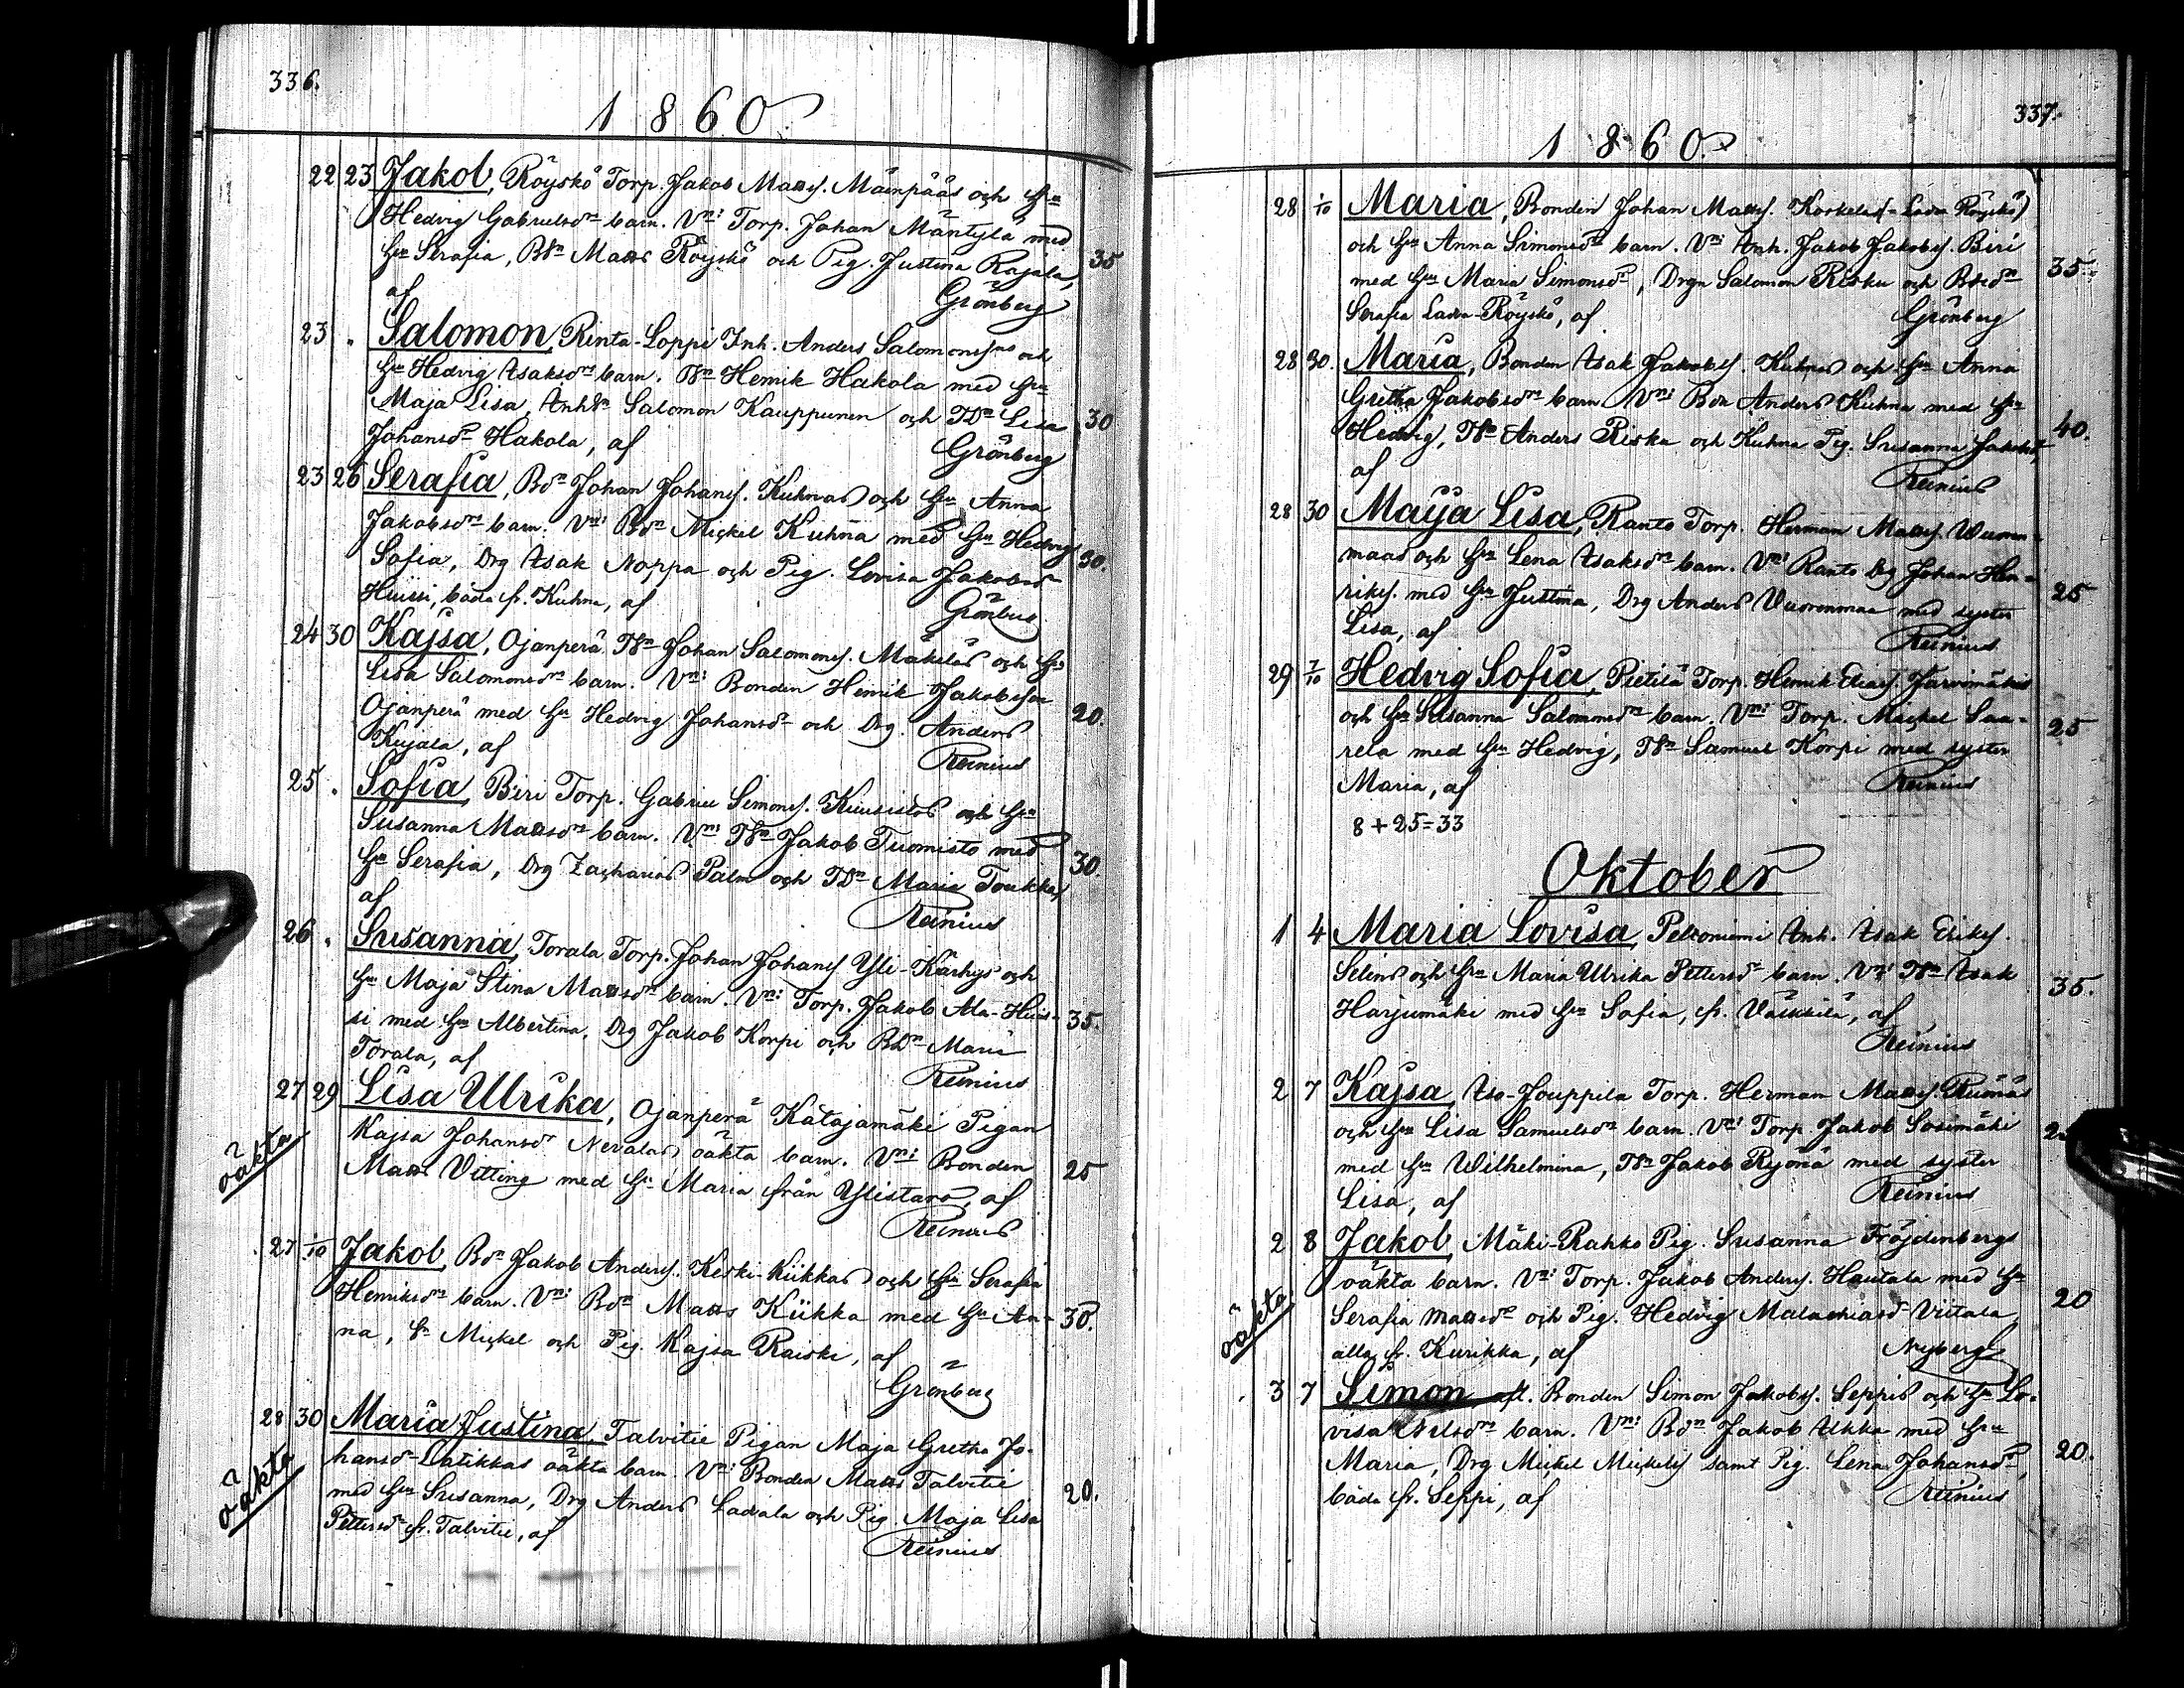 336.
1860.
22 23 Jakob, Röyskö Torp. Jakob Matts. Mäenpääs och hu
Hedvig Gabrielsdr barn. Vn: Torp. Johan Mäntylä med
hu Serafia, BSn Matts Röyskö och Pig. Justina Rajala, 35
af Grönberg
23 " Salomon, Rinta-Loppi Inh. Anders Salomonsons och
hu Hedvig Isaksdr barn. BSn Henrik Hakola med hu
Maja Lisa, InhSn Salomon Kauppunen och TDn Lisa 30
Johansdr Hakola, af Grönberg
23 26 Serafia, Bdn Johan Johans. Kuhnas och hu Anna
Jakobsdr barn. Vn: Bdn Mickel Kuhna med hu Hedvig
Sofia, Drg Isak Noppa och Pig. Lovisa Jakobsdr 30.
Huissi, båda fr. Kuhna, af Grönberg
24 30 Kajsa, Ojanperä TSn Johan Salomons. Mäkeläs och hu
Lisa Salomonsdr barn. Vn: Bonden Henrik Jakobsson
Ojanperä med hu Hedvig Johansdr och Drg. Anders 20.
Kujala, af Reinius
25 " Sofia, Biri Torp. Gabriel Simons. Kuusistos och hu
Susanna Mattsdr barn. Vn: TSn Jakob Tuomisto med
hu Serafia, Drg Zacharias Palm och TDn Maria Toukka, 30.
af Reinius
26 " Susanna, Torala Torp. Johan Johans Yli-Kärhys och
hu Maja Stina Mattsdr barn. Vn: Torp. Jakob Ala-Huis-
si med hu Albertina, Drg Jakob Korpi och BDn Maria 35.
Torala, af Reinius
27 29 Lisa Ulrika, Ojanperä Katajamäki Pigan
oäkta Kajsa Johansdr Nevalas oäkta barn. Vn: Bonden
Matts Vitting med hu Maria från Ylistaro, af 25
Reinius
27 1/10 Jakob, Bdn Jakob Anders. Keski-Kiikkas och hu Serafia
Henriksdr barn. Vn: Bdn Matts Kiikka med hu An-
na, Sn Mickel och Pig. Kajsa Raiski, af 30.
Grönberg
28 30 Maria Justina, Talvitie Pigan Maja Gretha Jo-
oäkta hansdr Latikkas oäkta barn. Vn: Bonden Matts Talvitie
med hu Susanna, Drg Anders Ladvala och Pig. Maja Lisa 20.
Pettersdr fr. Talvitie, af
Reinius
337.
1860.
28 1/10 Maria, Bonden Johan Matts. Korkelas (=Ladva Röyskö)
och hu Anna Simonsdr barn. Vn: Inh. Jakob Jakobs. Biri
med hu Maria Simonsdr, Drgn Salomon Risku och BSdn 35.
Serafia Ladva-Röyskö, af Grönberg
28 30. Maria, Bonden Isak Jakobs. Kuhnas och hu Anna
Gretha Jakobsdr barn Vn: Bdn Anders Kuhna med hu
Hedvig, TSn Anders Riska och Kuhna Pig. Susanna Jakobsdr, 40.
af Reinius
28 30 Maija Lisa, Ranto Torp. Herman Matts. Wuoren-
maas och hu Lena Isaksdr barn. Vn: Ranto Drg Johan Hen-
riks. med hu Justina, Drg Anders Vuorenmaa med syster 25
Lisa, af Reinius
29 7/10 Hedvig Sofia, Pietilä Torp. Henrik Elias. Jarvimäkis
och hu Susanna Salomonsdr barn. Vn: Torp. Mickel Saa-
rela med hu Hedvig, TSn Samuel Korpi med syster 25
Maria, af Reinius
8 + 25 = 33
Oktober
1 4 Maria Lovisa, Peltoniemi Inh. Isak Eriks.
Selins och hu Maria Ulrika Pettersdr barn. Vn: TSn Isak
Harjumäki med hu Sofia, fr. Väkkilä, af 35.
Reinius
2 7 Kajsa, Iso-Jouppila Torp. Herman Matts. Riumäs
och hu Lisa Samuelsdr barn. Vn: Torp Jakob Sorimäki
med hu Wilhelmina, TSn Jakob Ryömä med syster
Lisa, af Reinius
2 8 Jakob, Mäki-Rahko Pig. Susanna Fröjdenbergs
oäkta oäkta barn. Vn: Torp. Jakob Anders. Hautala med hu
Serafia Mattsdr och Pig. Hedvig Malachiasdr Viitala, 20
alla fr. Kurikka, af Nyberg
3 7 Simon, aft. Bonden Simon Jakobs. Seppis och hu Lo-
visa Nilsdr barn. Vn: Bdn Jakob Ukka med hu
Maria, Drg Mickel Mickels samt Pig. Lena Johansdr, 20.
båda fr. Seppi, af Reinius